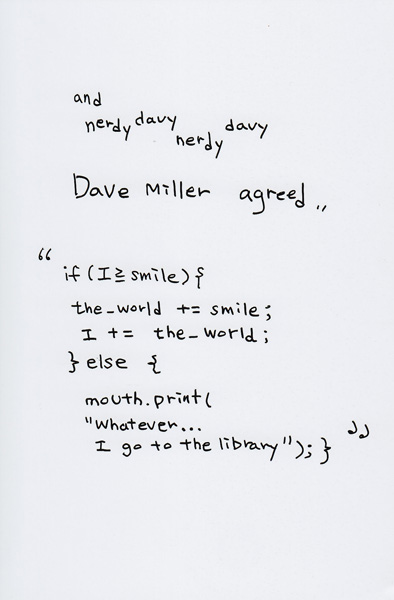 and
nerdy davy nerdy davy
Dave Miller agreed,,
“
if (I≧smile){
the_world += smile;
I += the_world;
} else {
mouth.print(
"whatever...
I go to the library"); } ”